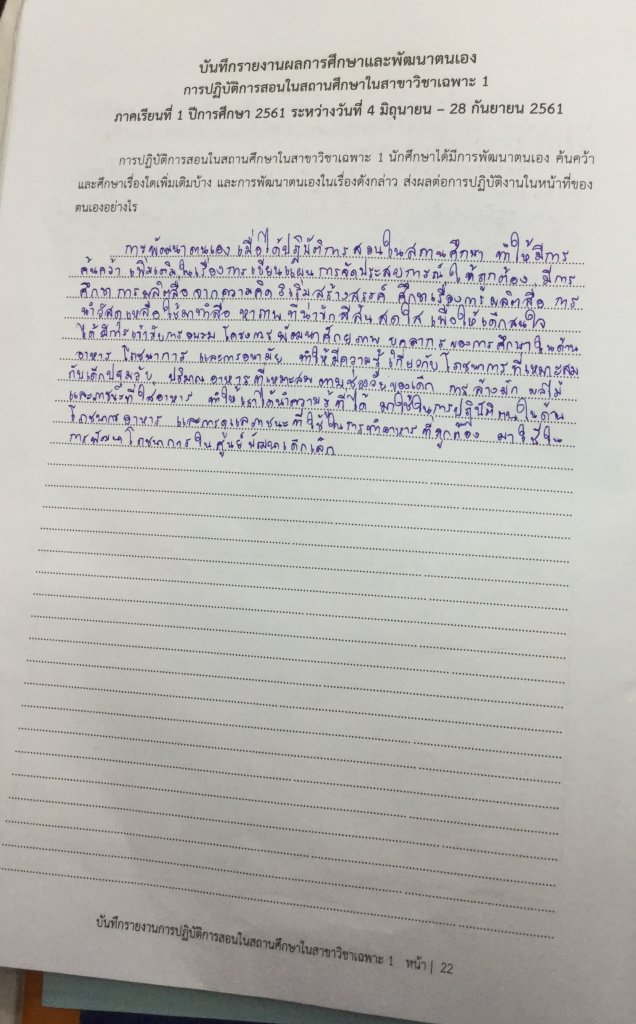 บันทึกรายงานผลการศึกษาและพัฒนาตนเอง
การปฏิบัติการสอนในสถานศึกษาในสาขาวิชาเฉพาะ 1
ภาคเรียนที่ 1 ปีการศึกษา 2561 ระหว่างวันที่ 4 มิถุนายน – 28 กันยายน 2561
การปฏิบัติการสอนในสถานศึกษาในสาขาวิชาเฉพาะ 1 นักศึกษาได้มีการพัฒนาตนเอง ค้นคว้า
และศึกษาเรื่องใดเพิ่มเติมบ้าง และการพัฒนาตนเองในเรื่องดังกล่าว ส่งผลต่อการปฏิบัติงานในหน้าที่ของ
ตนเองอย่างไร
การพัฒนาตนเอง เมื่อได้ปฏิบัติการสอนในสถานศึกษา ทำให้มีการ
ค้นคว้า เพิ่มเติมในเรื่องการเขียนแผนการจัดประสบการณ์ ให้ถูกต้อง มีการ
ศึกษา การผลิตสื่อ จากความคิด ริเริ่ม สร้างสรรค์ ศึกษาเรื่องการผลิตสื่อ การ
นำวัสดุเหลือใช้มาทำสื่อ หาภาพ ที่น่ารัก สีสัน สดใส เพื่อให้เด็กสนใจ
ได้มีการเข้ารับการอบรม โครงการ พัฒนาศักยภาพ บุคลากร ของการศึกษาในด้าน
อาหาร โภชนาการ และการอนามัย ทำให้มีความรู้ เกี่ยวกับ โภชนาการ ที่เหมาะสม
กับเด็กปฐมวัย ปริมาณ อาหาร ที่เหมาะสม ตามช่วงวัย ของเด็ก การ ล้างผัก ผลไม้
และภาชนะที่ใส่อาหาร ทำให้ เราได้นำความรู้ที่ได้ มาใช้ในการปฏิบัติ ตนในด้าน
โภชนาการ อาหาร และการดูแลภาชนะ ที่ใช้ในการทำอาหาร ที่ถูกต้อง มาใช้ใน
การพัฒนา โภชนาการ ใน ศูนย์พัฒนาเด็กเล็ก
บันทึกรายงานการปฏิบัติการสอนในสถานศึกษาในสาขาวิชาเฉพาะ 1 หน้า | 22